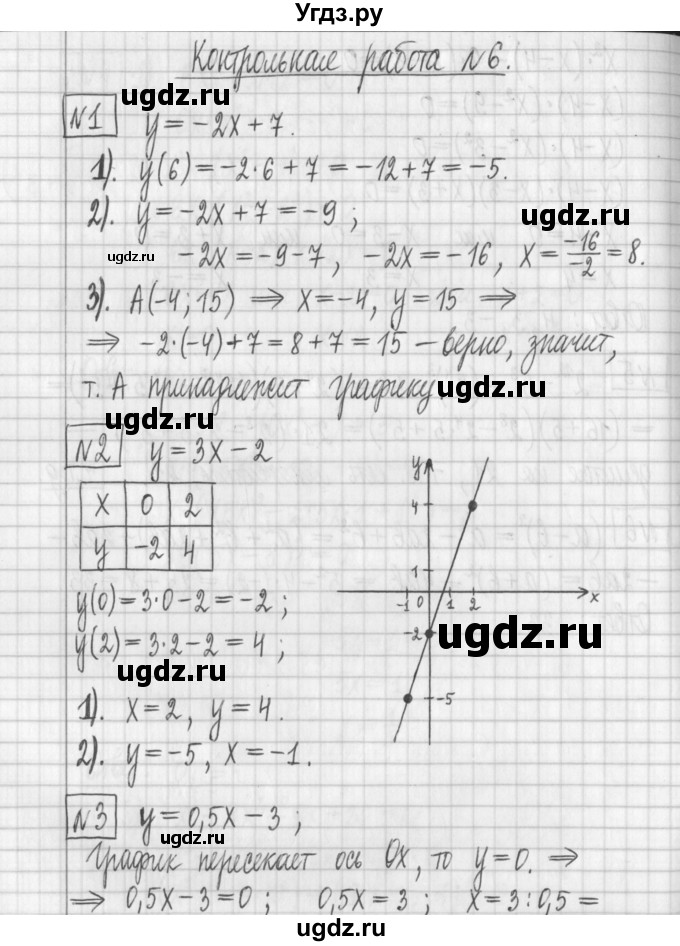 Угдз.ру
Контрольная работа №6.
№1 y = -2x + 7.
1). y(6) = -2·6 + 7 = -12 + 7 = -5.
2). y = -2x + 7 = -9 ;
-2x = -9 - 7, -2x = -16, x = -16/-2 = 8.
3). A(-4; 15) ⇒ x = -4, y = 15 ⇒
⇒ -2·(-4) + 7 = 8 + 7 = 15 – верно, значит,
т. А принадлежит графику.
№2 y = 3x - 2
x 0 2
y -2 4
y(0) = 3·0 - 2 = -2 ;
y(2) = 3·2 - 2 = 4 ;
1). x = 2, y = 4.
2). y = -5, x = -1.
y
4
1
-1 0 1 2 x
-2
-5
№3 y = 0,5x - 3 ;
График пересекает ось Ox, то y = 0. ⇒
⇒ 0,5x - 3 = 0 ; 0,5x = 3 ; x = 3 : 0,5 =
ugdz.ru
ugdz.ru
ugdz.ru
ugdz.ru
ugdz.ru
ugdz.ru
ugdz.ru
ugdz.ru
ugdz.ru
ugdz.ru